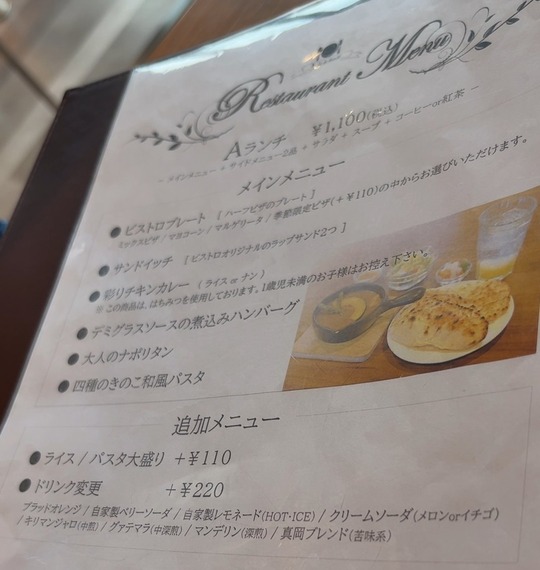 Restaurant Menu
Aランチ ¥1,100(税込)
- メインメニュー + サイドメニュー2品 + サラダ + スープ + コーヒーor紅茶 -
メインメニュー
●ビストロプレート [ ハーフピザのプレート ]
ミックスピザ / マヨコーン / マルゲリータ / 季節限定ピザ(+¥110)の中からお選びいただけます。
●サンドイッチ [ ビストロオリジナルのラップサンド2つ ]
●彩りチキンカレー (ライス or ナン)
※この商品は、はちみつを使用しております。1歳児未満のお子様はお控え下さい。
●デミグラスソースの煮込みハンバーグ
●大人のナポリタン
●四種のきのこ和風パスタ
追加メニュー
●ライス / パスタ大盛り +¥110
●ドリンク変更 +¥220
ブラッドオレンジ / 自家製ベリーソーダ / 自家製レモネード(HOT・ICE) / クリームソーダ(メロンorイチゴ)
/ キリマンジャロ(中煎) / グァテマラ(中深煎) / マンデリン(深煎) / 真岡ブレンド(苦味系)